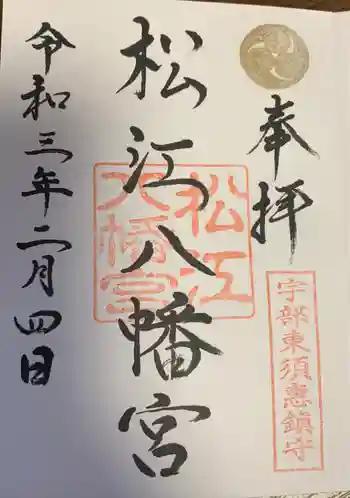 奉拝
宇部東須恵鎮守
松江八幡宮
松江八幡宮
令和三年二月四日